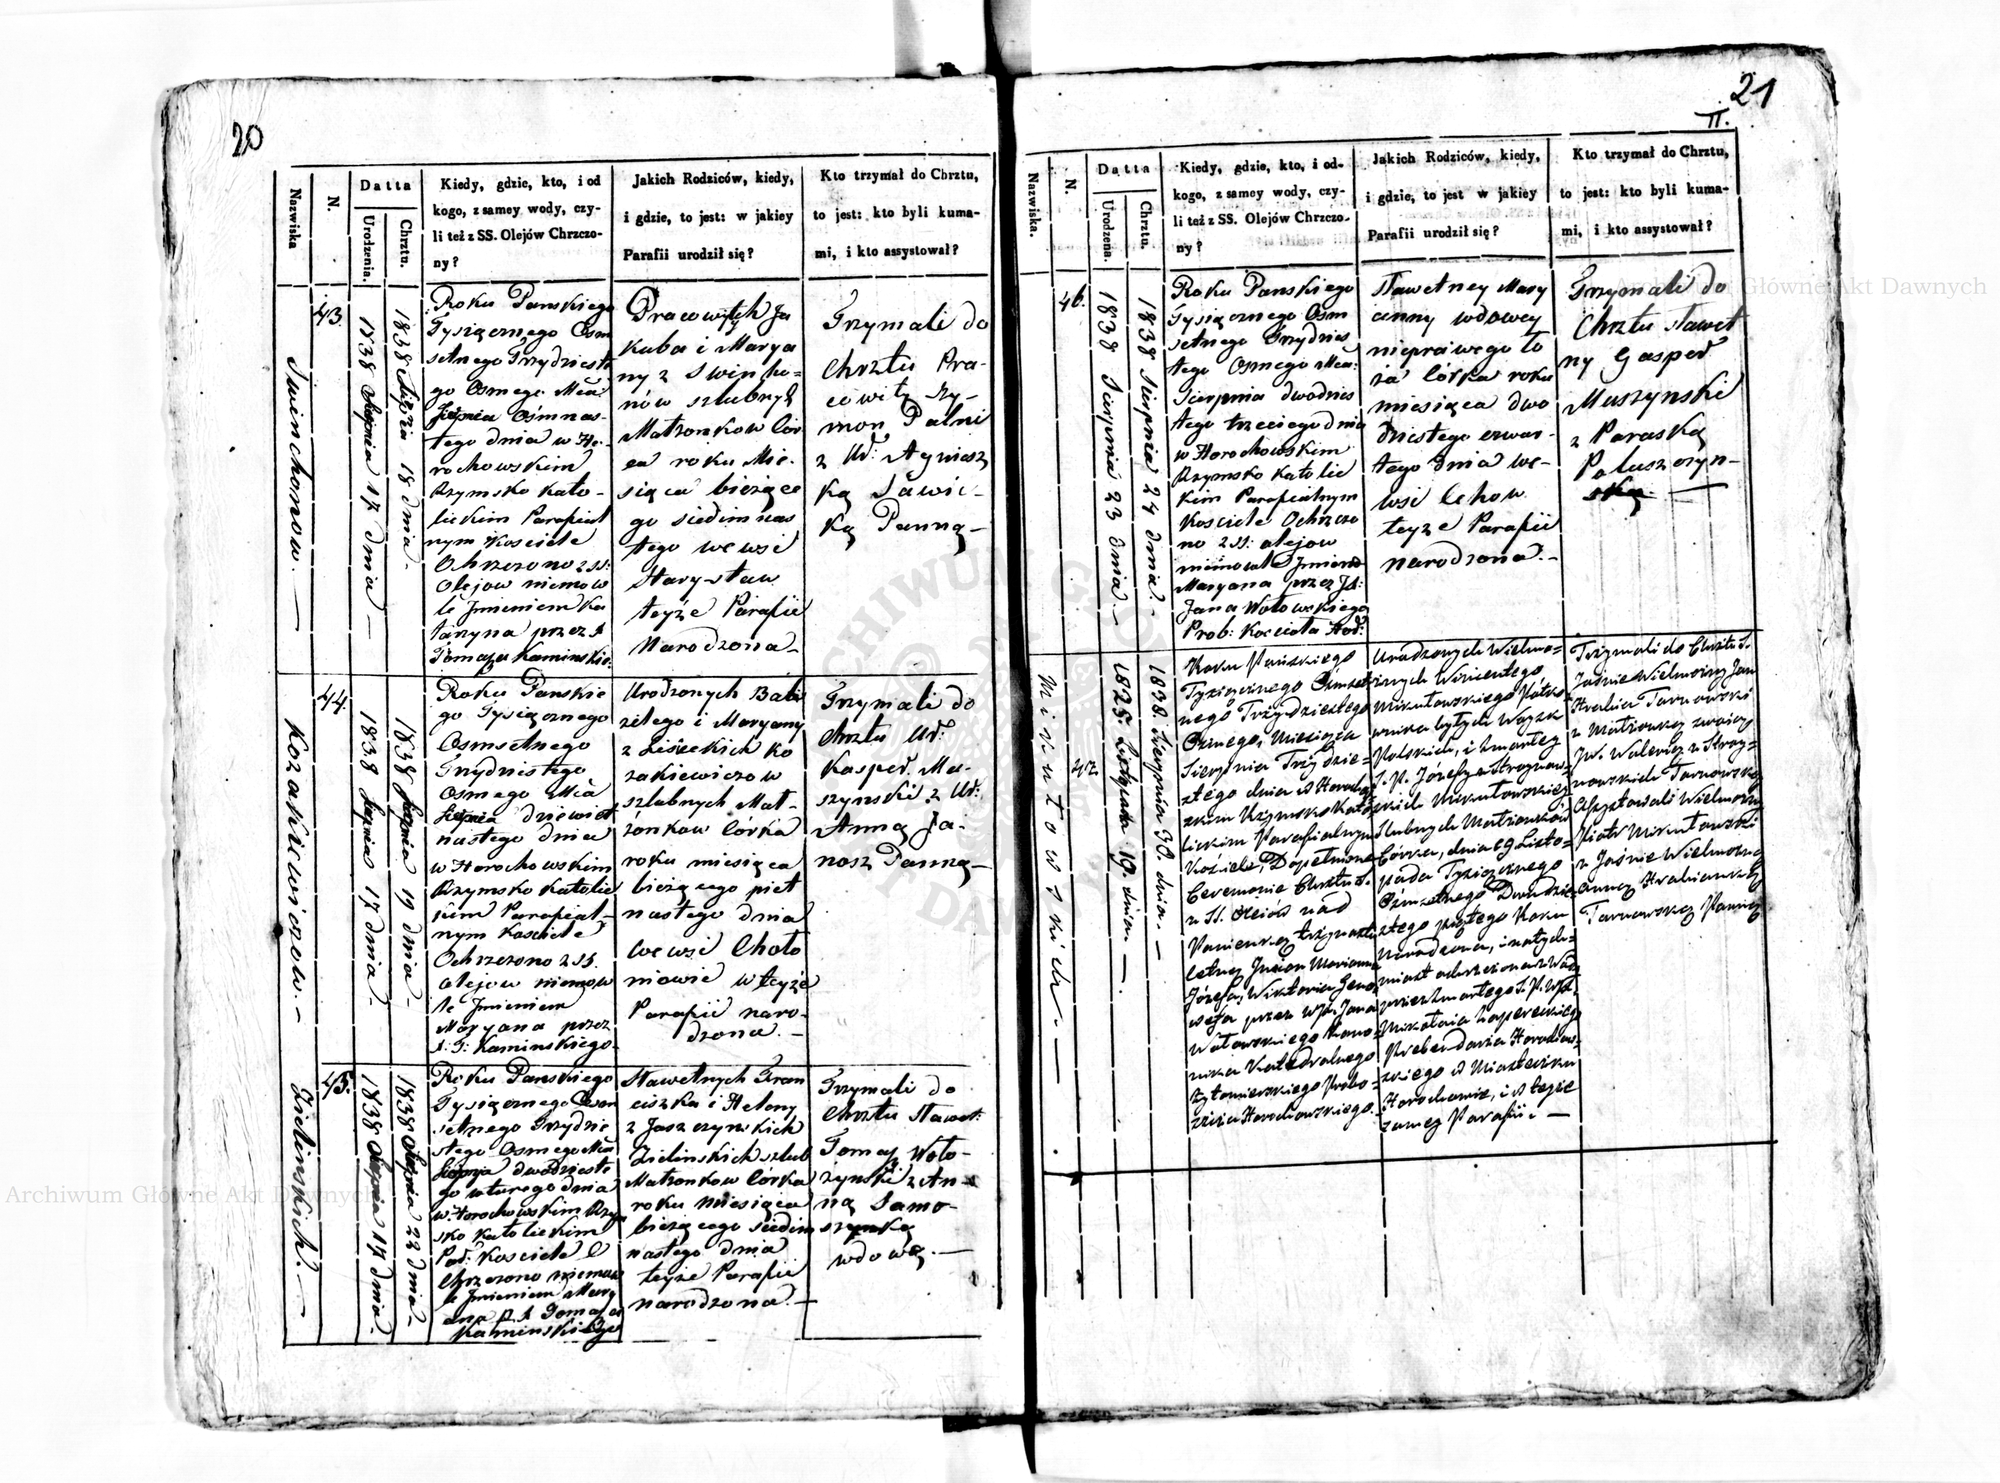 20
Nazwiska
N.
Datta
Urodzenia.
Chrztu.
Kiedy, gdzie, kto, i od
kogo, z samey wody, czy-
li też z SS. Olejów Chrzczo-
ny?
Jakich Rodziców, kiedy,
i gdzie, to jest: w jakiey
Parafii urodził się?
Kto trzymał do Chrztu,
to jest: kto byli kuma-
mi, i kto assystował?
Swinchonow.
43.
1838 17 dnia
1838 18 dnia.
Roku Panskiego
Tysiącznego Osm
setnego Trzydzieste
go Osmego Mca
Ośmnas-
tego dnia w Ho-
rochowskim
Rzymsko Kato-
lickim Parafial
nym Kosciele
Ochrzczono z SS:
Olejow niemow
le Jmieniem Ka
tarzyna przez
Tomasza Kaminskie.
Pracowitych Ja
kuba i Marya
ny z Swincho=
nów szlubnych
Małzonkow Cór
ca roku Mie-
siąca bieżące
go siedmnas
tego we wsi
Starystaw
teyże Parafii
Narodzona.
Trzymali do
Chrztu Pra-
cowity Szy-
mon Palni
z Ur: Agniesz
ką Sawic-
ką Panną
Kozakiewiczow.
44.
1838 17 dnia.
1838 19 dnia
Roku Panskie
go Tysiącznego
Osmsetnego
Trzydziestego
Osmego Mca
dziewięt
nastego dnia
w Horochowskim
Rzymsko Katolic
kim Parafial-
nym Kosciele
Ochrzczono z SS.
Olejow niemow
le Jmieniem
Maryana przez
Kaminskiego.
Urodzonych
i Maryanny
z Ko
zakiewiczow
szlubnych Mał-
żonkow Córka
roku miesiąca
bieżącego pięt
nastego dnia
we wsi Choło
niowie w teyże
Parafii naro-
dzona.
Trzymali do
Chrztu Ur:
Kasper Mu-
szynski z Ur:
Anną Ja-
nosz Panną
Zielinskich.
45.
1838 17 dnia.
1838 22 dnia.
Roku Panskiego
Tysiącznego Osm
setnego Trzydzie
stego Osmego Mca
dwudzieste
go wturego dnia
w Horochowskim Rzym
sko Katolickim
Par: Kosciele O
chrzczono niemow
le Jmieniem Mary
anna Tomasza
Kaminskiego
Sławetnych Fran
ciszka i Heleny
z Jaszczynskich
Zielinskich szlub
Małzonkow Córka
roku miesiąca
bieżącego siedm
nastego dnia
teyże Parafii
narodzona.
Trzymali do
Chrztu Sławet:
Tomasz Woło-
żynski z An-
ną Samo-
szynską
wdową.
21
II.
Nazwiska.
N.
Datta
Urodzenia.
Chrztu.
Kiedy, gdzie, kto, i od-
kogo, z samey wody, czy-
li też z SS. Olejów Chrzczo-
ny?
Jakich Rodziców, kiedy,
i gdzie, to jest w jakiey
Parafii urodził się?
Kto trzymał do Chrztu,
to jest: kto byli kuma-
mi, i kto assystował?
46.
1838 Sierpnia 23 dnia.
1838 Sierpnia 24 dnia.
Roku Panskiego
Tysiącznego Osm
setnego Trzydzies
tego Osmego Mca:
Sierpnia dwudzies
tego trzeciego dnia
w Horochowskim
Rzymsko Katolic
kim Parafialnym
Kosciele Ochrzczo
no z SS: olejow
niemowle Jmieniem
Maryana przez
Jana Wołowskiego
Prob: Kosciola Hor:
Sławetney Mary
anny wdowey
nieprawego ło
ża Córka roku
miesiąca dwu
dziestego czwar-
tego dnia we-
wsi Lchow
teyże Parafii
narodzona.
Trzymali do
Chrztu Sławet
ny Gasper
Muszynski
z Paraską
Paluszczyn-
ską
Mikułowskich.
47.
1825 Listopada 19. dnia.
1838. Sierpnia 30. dnia.
Roku Pańskiego
Tysiącznego Ośmset=
nego Trzydziestego
Ósmego, Miesiąca
Sierpnia Trzydzie=
stego dnia w Horocho=
wskim Rzymsko Kato=
lickim Parafialnym
Kościele, Dopełniono
Ceremonie Chrztu S.
z SS. Olejów nad
Panienką trzynasto
letnią Jmion Marianna
Józefa, Wiktoria Geno=
wefa przez WJX. Jana
Wołowskiego Kano=
nika Katedralnego
Żytomierskiego Probo=
szcza Horochowskiego.
Urodzonych Wielmo=
żnych Wincentego
Mikułowskiego Półko=
wnika byłych Woysk
Polskich, i zmarłey
Ś. P. Józefy z Stroynow=
skich Mikułowskiey
Ślubnych Małżonków
Córka, dnia 19 Listo=
pada Tysiącznego
Ośmsetnego Dwudzie=
stego piątego Roku
Narodzona, i natych=
miast ochrzczona z Wody
przez zmarłego Ś. P. WJX.
Mikołaja Kasperskiego
Prebendarza Horochow=
skiego w Miasteczku
Horochowie, i w tegże
samey Parafii.
Trzymali do Chrztu S.
Jaśnie Wielmożny Jan
Hrabia Tarnowski
z Małżonką swoją
JW. Walerią z Stroy=
nowskich Tarnowską
Assystowali Wielmożny
Piotr Mikułowski
z Jaśnie Wielmożną
Anną Hrabianką
Tarnowską Panną
Archiwum Główne Akt Dawnych
Archiwum Główne Akt Dawnych